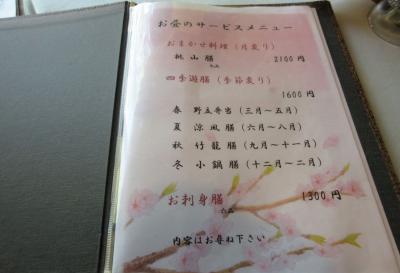 お昼のサービスメニュー
おまかせ料理(月変り)
桃山膳 2100円
四季遊膳(季節変り)
1600円
春 野立弁当(三月～五月)
夏 涼風膳(六月～八月)
秋 竹籠膳(九月～十一月)
冬 小鍋膳(十二月～二月)
お刺身膳 1300円
内容はお尋ね下さい